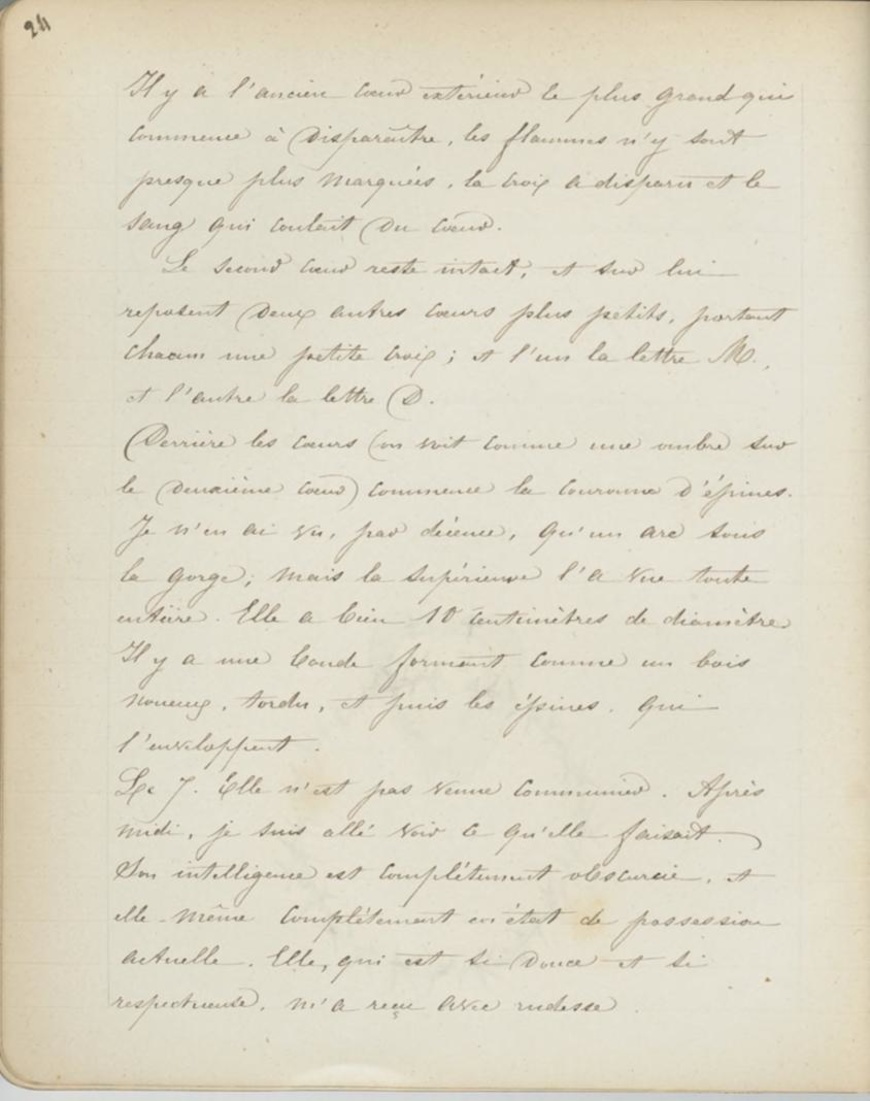 24
Il y a l'ancien cœur extérieur le plus grand qui
commence à disparaître, les flammes n'y sont
presque plus marquées, la croix a disparu et le
sang qui coulait du cœur.
Le second cœur reste intact, et sur lui
reposent deux autres cœurs plus petits, portant
chacun une petite croix ; et l'un la lettre M.,
et l'autre la lettre D.
Derrière les cœurs (on voit comme une ombre sur
le deuxième cœur) commence la couronne d'épines.
Je n'en ai vu, par décence, qu'un arc sous
la gorge ; mais la supérieure l'a vue toute
entière. Elle a bien 10 centimètres de diamètre.
Il y a une bande formant comme un bois
noueux, tordu, et puis les épines. qui
l'enveloppent.
Le 7. Elle n'est pas venue communier. Après
midi, je suis allé voir ce qu'elle faisait.
Son intelligence est complétement obscurcie, et
elle-même complétement en état de possession
actuelle. Elle, qui est si douce et si
respectueuse, m'a reçu avec rudesse.